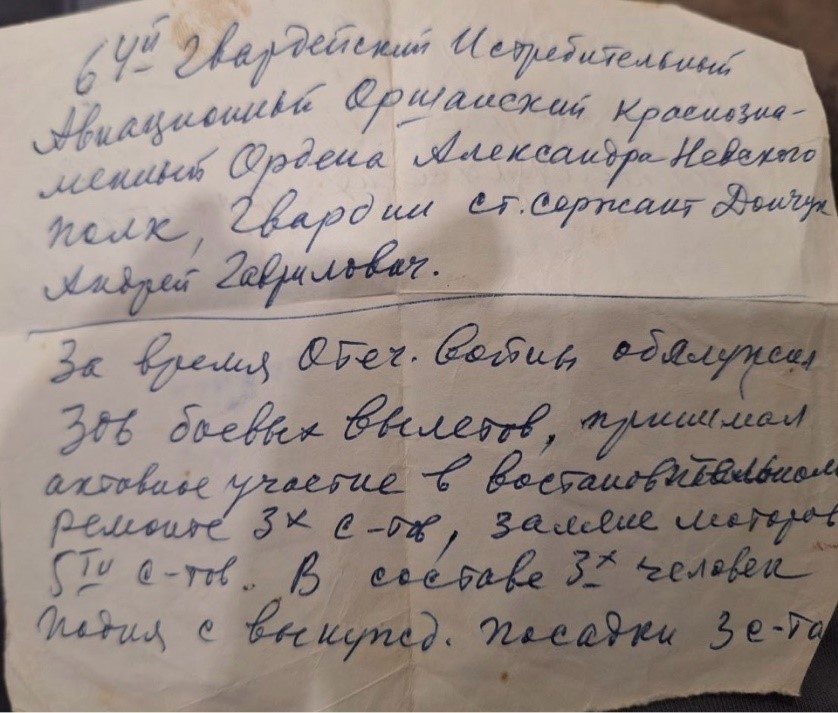 64й Гвардейский Истребительный
Авиационный Оршанский Краснозна-
менный Ордена Александра Невского
полк, Гвардии ст. сержант Дончук
Андрей Гаврилович.
За время Отеч. Войны обслужил
306 боевых вылетов, принимал
активное участие в востановительном
ремонте 3х с-тов, замене моторов
5ти с-тов. В составе 3х человек
Поднял с вынужд. посадки 3 с-та